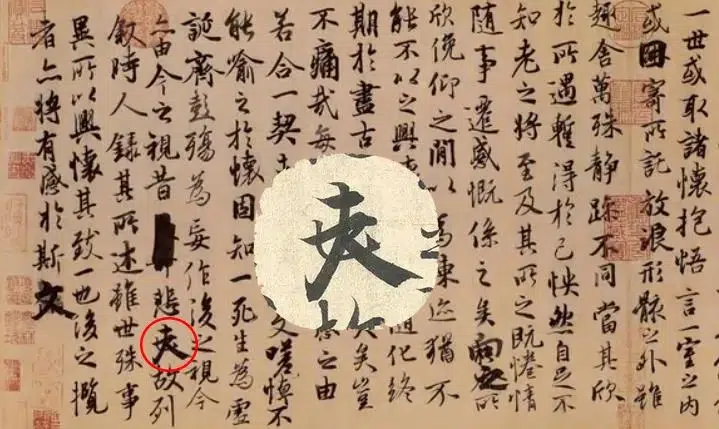 一世或取諸懷抱悟言一室之内
或因寄所託放浪形骸之外雖
趣舍萬殊靜躁不同當其欣
於所遇暫得於己怏然自足不
知老之將至及其所之既惓情
隨事遷感慨係之矣向之所
欣俛仰之閒以為陳迹猶不
能不以之興隨化終
期於盡古矣豈
不痛哉每之由
若合一契文嗟悼不
能喻之於懷固知一死生為虛
誕齊彭殤為妄作後之視今
亦由今之視昔悲夫故列
敘時人錄其所述雖世殊事
異所以興懷其致一也後之攬
者亦將有感於斯文
夫